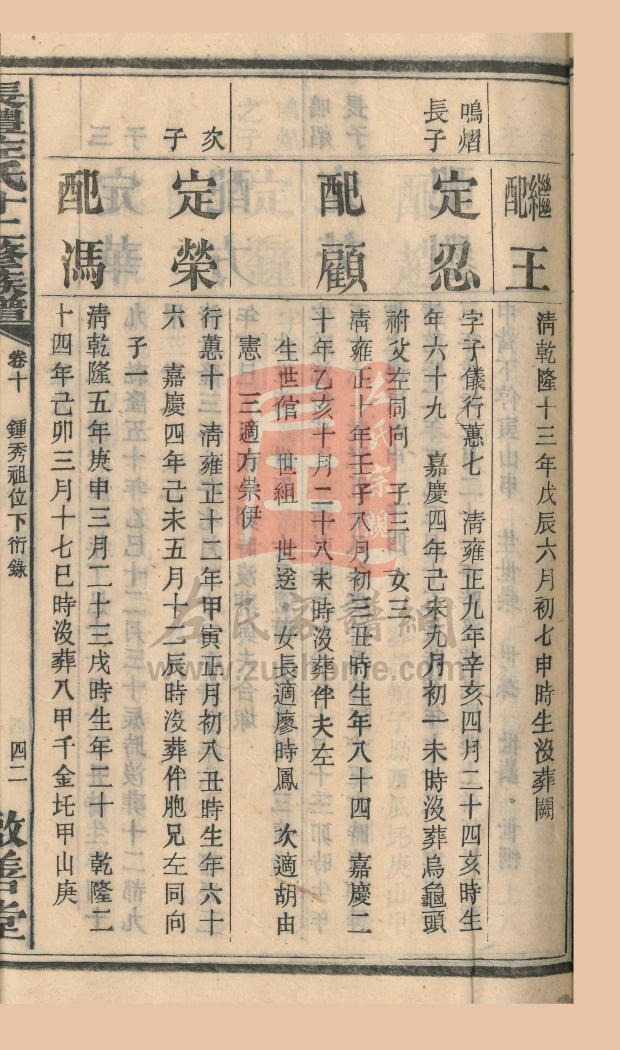 繼配王
清乾隆十三年戊辰六月初七申時生沒葬闕
鳴熠長子
定忍
字子儀行蕙七　清雍正九年辛亥四月二十四亥時生
年六十九　嘉慶四年己未九月初一未時沒葬烏龜頭
祔父左同向　子三　女三
配顧
清雍正十年壬子八月初三丑時生年八十四　嘉慶二
十年乙亥十月二十八未時沒葬伴夫左
生世倌　世組　世送　女長適廖時鳳　次適胡由
憲　三適方崇伊
次子
定榮
行蕙十三　清雍正十二年甲寅正月初八丑時生年六十
六　嘉慶四年己未五月十二辰時沒葬伴胞兄左同向
子一
配馮
清乾隆五年庚申三月二十三戌時生年二十　乾隆二
十四年己卯三月十七巳時沒葬八甲千金圫甲山庚
長澧左氏十二修族譜
卷十　鍾秀祖位下衍錄
四二
敦善堂
左氏宗親
左氏家譜網
www.zuohome.com